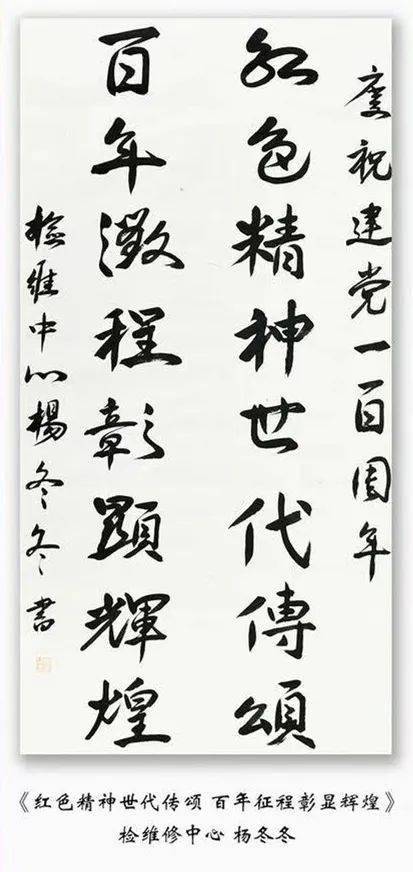 慶祝建党一百周年
紅色精神世代傳頌
百年徵程彰顯輝煌
检維中心楊冬冬書
《红色精神世代传颂 百年征程彰显辉煌》
检维修中心 杨冬冬